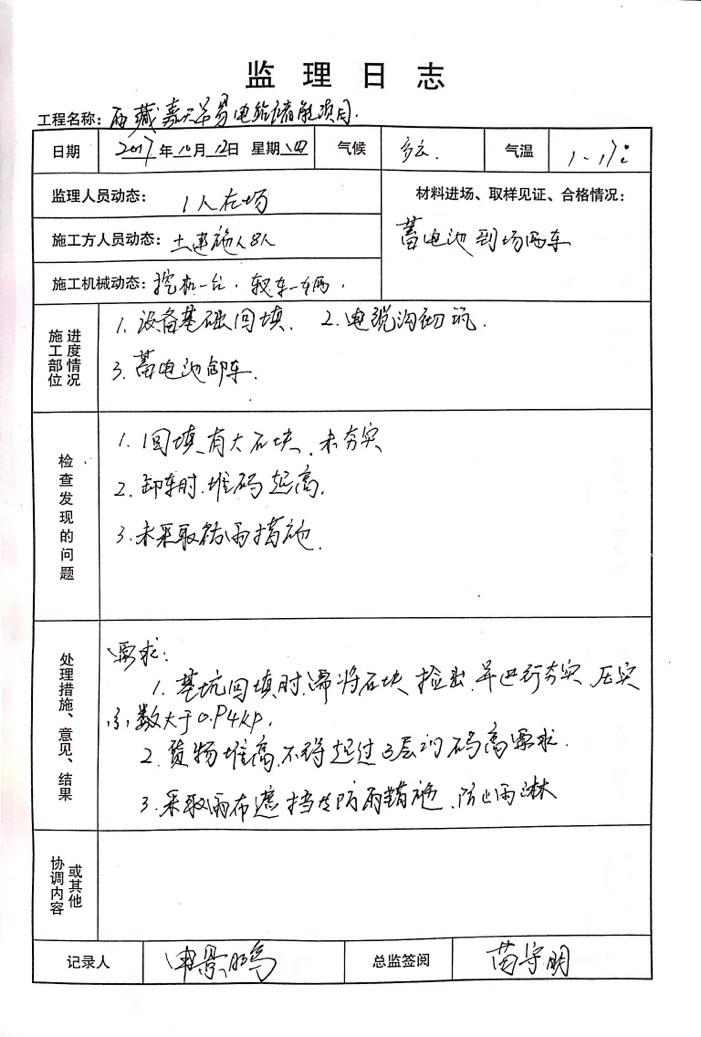 监理日志
工程名称：西藏嘉天羊易电站储能项目.
日期 2017年10月12日 星期四 气候 多云. 气温 1-17℃
监理人员动态： 1人在场
材料进场、取样见证、合格情况：
蓄电池到场两车
施工方人员动态：土建施人8人
施工机械动态：挖机一台. 轿车一辆.
进度情况
施工部位
1. 设备基础回填. 2. 电缆沟砌筑.
3. 蓄电池卸车.
检查发现的问题
1. 回填有大石块.未夯实
2. 卸车时.堆码超高.
3. 未采取防雨措施.
处理措施、意见、结果
要求：
1. 基坑回填时.需将石块捡出.并进行夯实.压实
系数大于0.94kp.
2. 货物堆高.不得超过3层的码高要求.
3. 采取雨布遮挡等防雨措施.防止雨淋
或其他
协调内容
记录人 申景鹏 总监签阅 苗守明